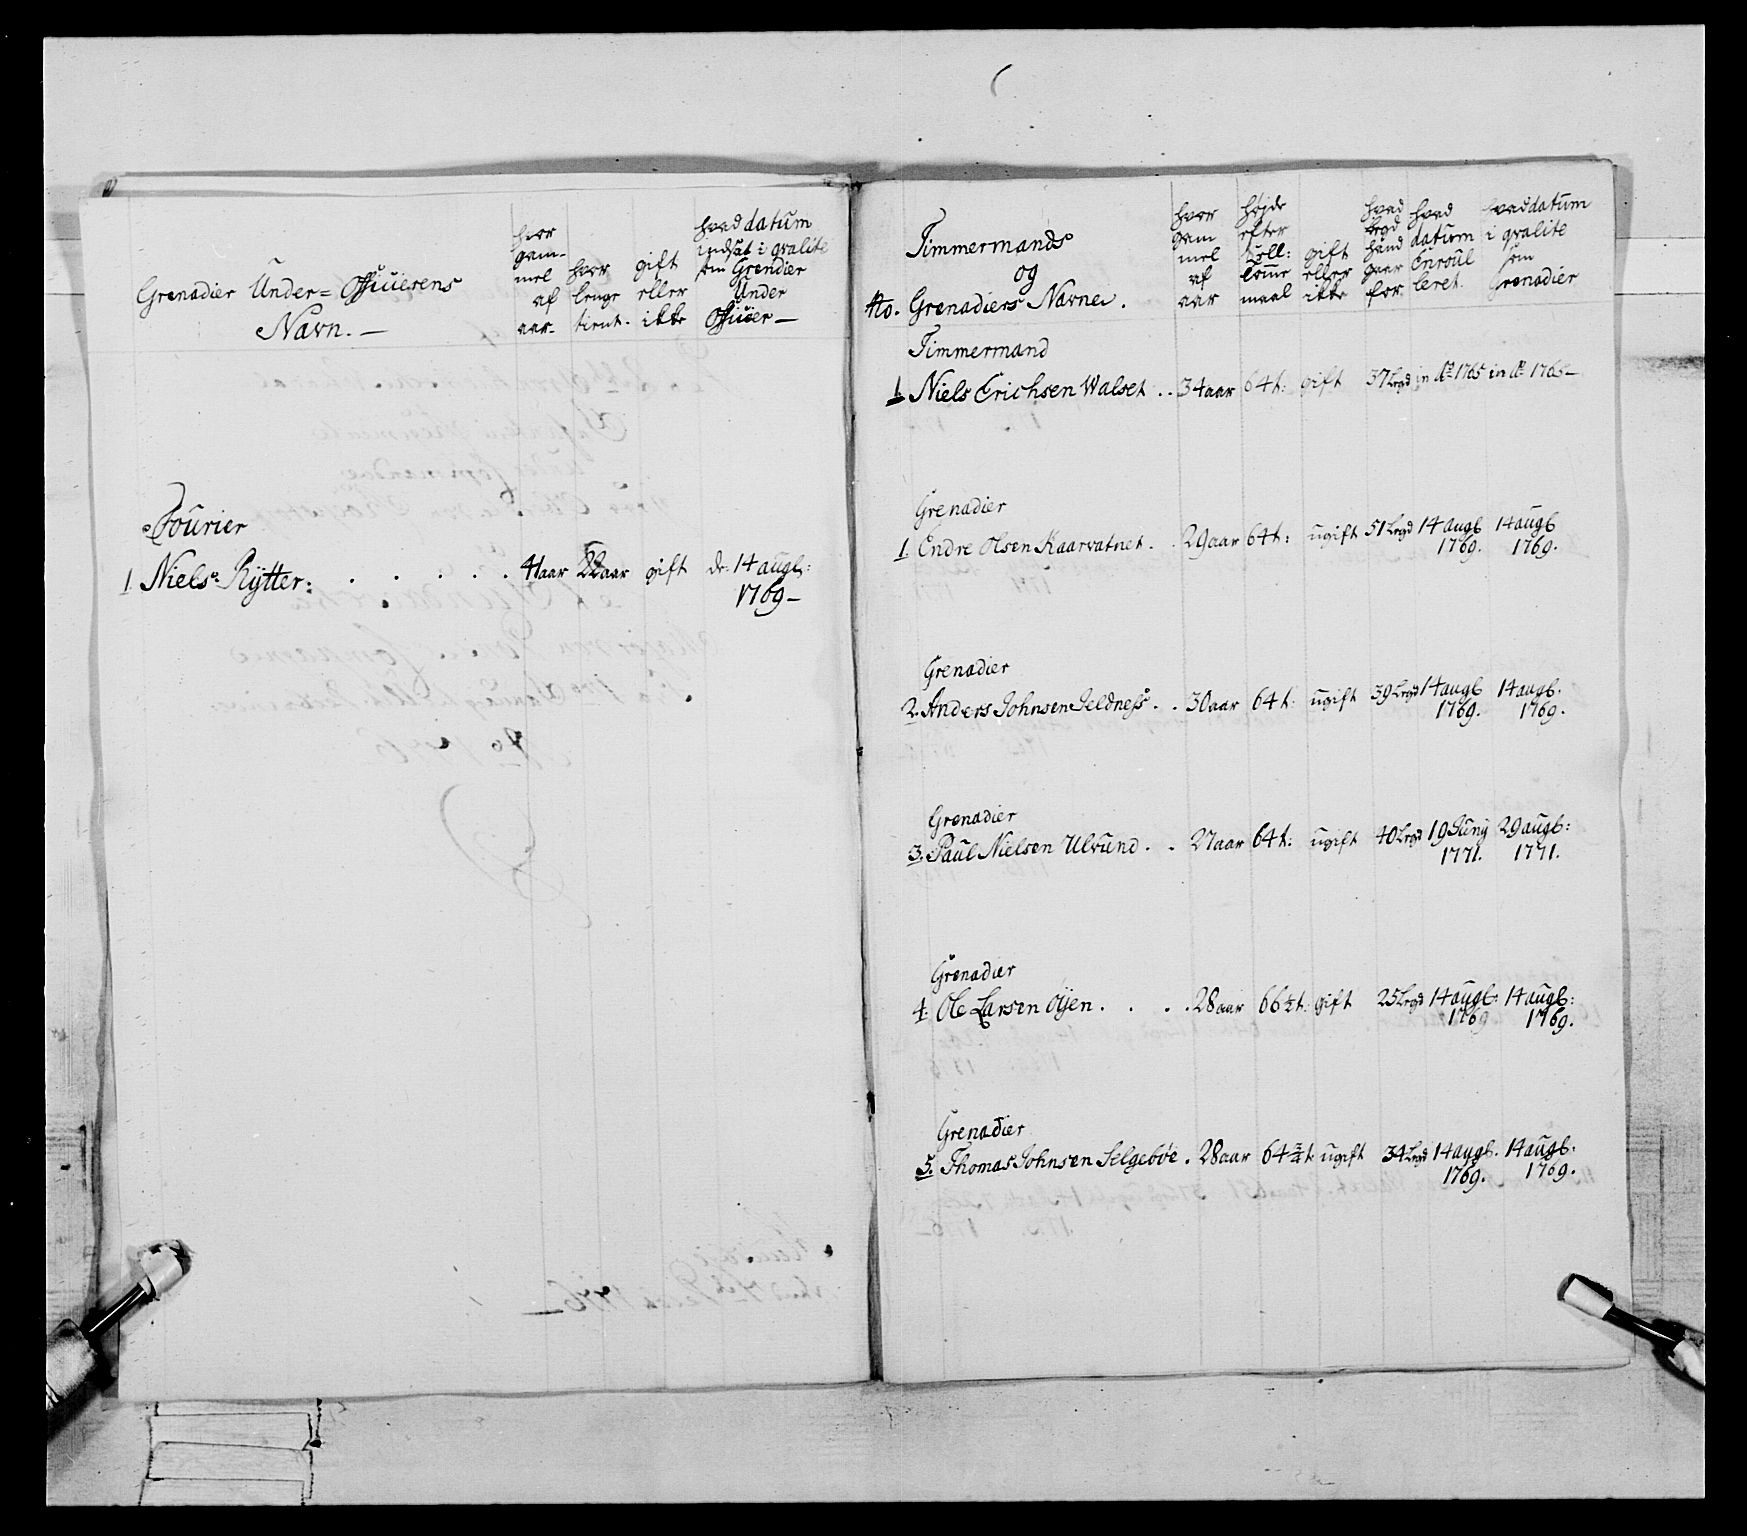 Grenadier Under= Officierens
Navn. —
hvor gam- mel af aar-
hvor lenge tient.
gift eller ikke
hvad datum indsat i qvalite som Grendier Under Officier —
Fourier
1. Niels Rÿtter: . . . . . 41 aar 22 aar gift de: 14 augl:
1769 —
Timmermands
og
No. Grenadiers Navne.
hvor gam mel af aar
højde efter toll: tomme maal
gift eller ikke
hvad legd hånd gaar for.
hvad datum Enroul leret.
hvad datum i qvalite som Grenadier
Timmermand
1. Niels Erichsen Walset . . 34 aar 64 t: gift 37 Legd in Ao 1765 in Ao 1765 —
Grenadier
1. Endre Olsen Kaarvatnet . . 29 aar 64 t: ugift 51 Legd 14 augl 14 augl
1769. 1769.
Grenadier
2. Anders Johnsen Jeldness . . 30 aar 64 t: ugift 39 Legd 14 augl 14 augl.
1769. 1769.
Grenadier
3. Paul Nielsen Ulvund . . 27 aar 64 t: ugift 40 Legd 19 Junÿ 29 augl:
1771. 1771.
Grenadier
4. Ole Larsen Öÿen . . . . 28 aar 66 ½ t: gift 25 Legd 14 augl: 14 augl:
1769 1769.
Grenadier
5. Thomas Johnsen Selgebøe . 28 aar 64 ¾ t ugift 34 Legd 14 augl. 14 augl:
1769. 1769.